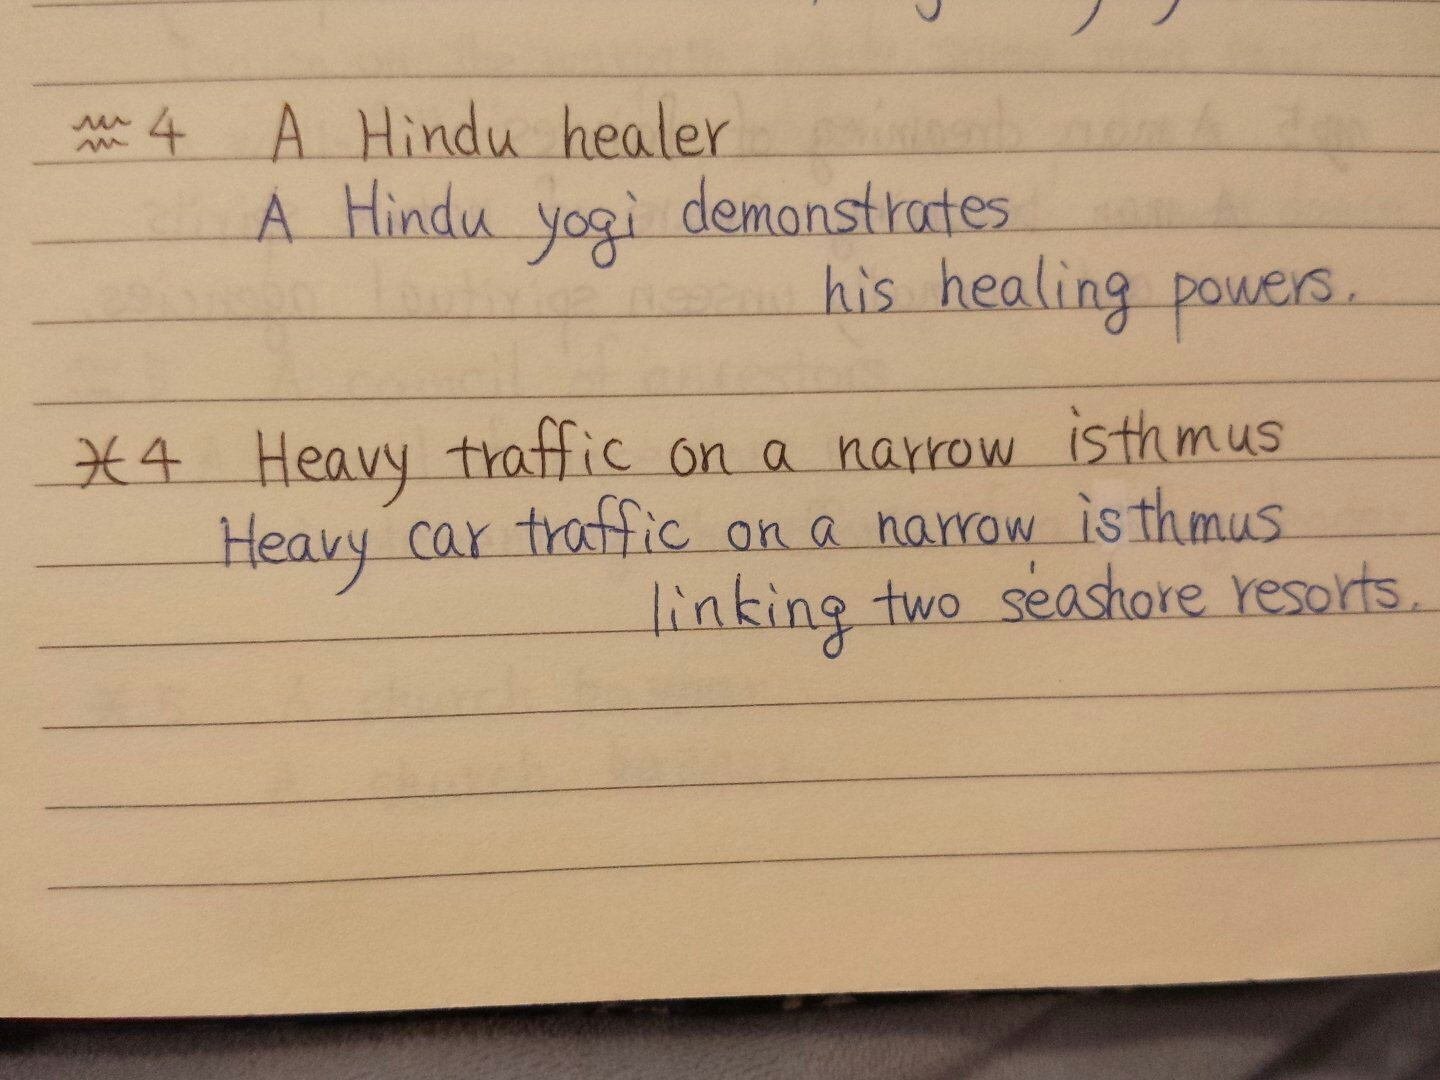 ♒4 A Hindu healer
A Hindu yogi demonstrates
his healing powers.
♓4 Heavy traffic on a narrow isthmus
Heavy car traffic on a narrow isthmus
linking two seashore resorts.